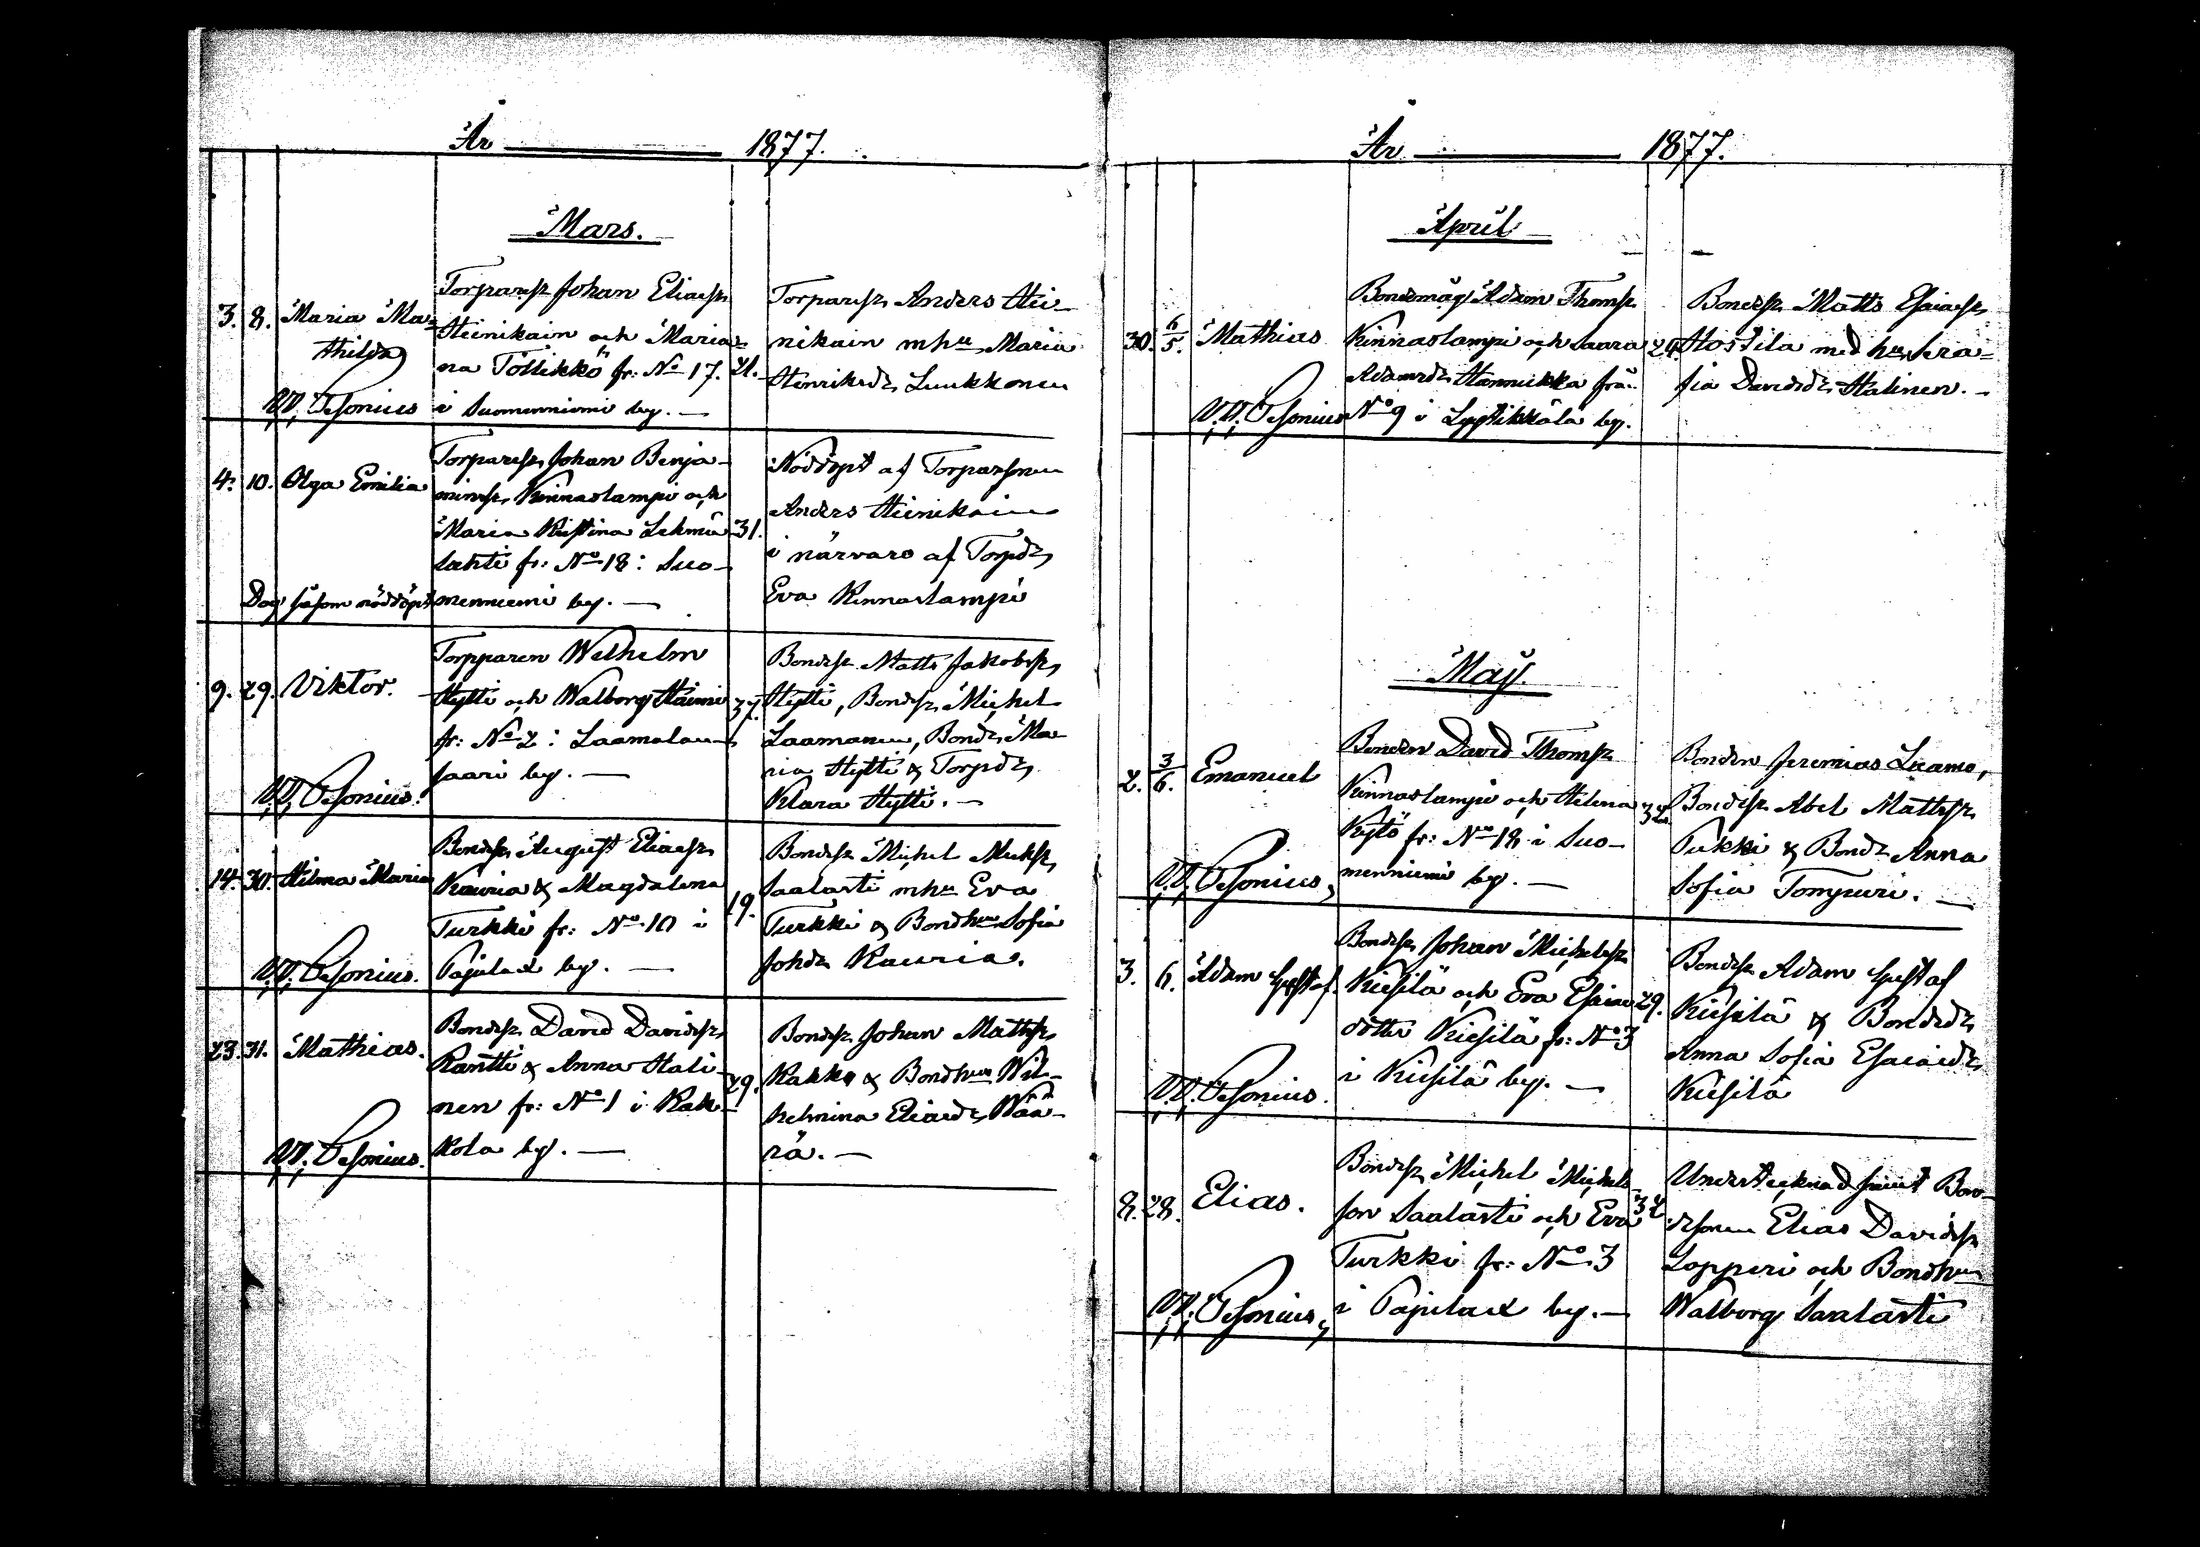 År 1877.
Mars.
3. 8. Maria Ma-
thilda
V.D. Pesonius
Torparesn Johan Eliassn
Heinikain och Maria-
na Töllikkö fr: No 17.
i Suomenniemi by. —
21.
Torparesn Anders Hei-
nikain m hu Maria
Henriksdr Luukkonen
4. 10. Olga Emilia
Dog såsom nöddöpt
Torparesn Johan Benja-
minsn Kinnaslampi och
Maria Kristina Lehmu-
sahti fr: No 18 i Suo-
menniemi by. —
31.
Nöddöpt af Torparsonen
Anders Heinikain
i närvaro af Torpdr
Eva Kinnaslampi
9. 29. Viktor.
V.D. Pesonius.
Torpparen Welhelm
Hytti och Walborg Haimi
fr: No 2 i Laamalan-
saari by. —
37.
Bondesn Matts Jakobsn
Hytti, Bondesn Michel
Laamanen, Bondr Ma-
ria Hytti & Torpdr
Klara Hytti. —
14. 30. Hilma Maria
V.D. Pesonius.
Bondesn August Eliassn
Kauria & Magdalena
Turkki fr: No 10 i
Pajulaks by. —
19.
Bondesn Michel Michsn
Saalasti m hu Eva
Turkki & Bondhun Sofia
Johdr Kauria.
23. 31. Mathias.
V.D. Pesonius.
Bondesn David Davidssn
Rantti & Anna Hali-
nen fr: No 1 i Kak-
kola by. —
29.
Bondesn Johan Mattsn
Kakko & Bondhun Wil-
helmina Eliaedr Wää-
rä. —
År 1877.
April
30. 6/5. Mathias
V.D. Pesonius
Bondemåg Adam Thomsn
Kinnaslampi och Saara
Adamsdr Hannukka från
No 9 i Lyytikkälä by.
24
Bondesn Matts Esaiassn
Hostila med hu Sera-
fia Davidsdr Halinen. —
Maji.
2. 3/6. Emanuel
V.D. Pesonius,
Bonden David Thomsn
Kinnaslampi och Helena
Kylö fr: No 18 i Suo-
menniemi by. —
32
Bonden Jeremias Laamo,
Bondesn Abel Mattssn
Pukki & Bondr Anna
Sofia Tompuri. —
3. 6. Adam Gustaf.
V.D. Pesonius.
Bondesn Johan Michelsn
Kiesilä och Eva Esaias
dotter Kiesilä fr: No 3
i Kiesilä by. —
29.
Bondesn Adam Gustaf
Kiesilä & Bondedr
Anna Sofia Esaiaedr
Kiesilä
8. 28. Elias.
V.D. Pesonius,
Bondesn Michel Michels-
son Saalasti och Eva
Turkki fr: No 3
i Pajulaks by. —
32
Undertecknad samt Bon-
desonen Elias Davidsn
Lopperi och Bondhun
Walborg Saalasti